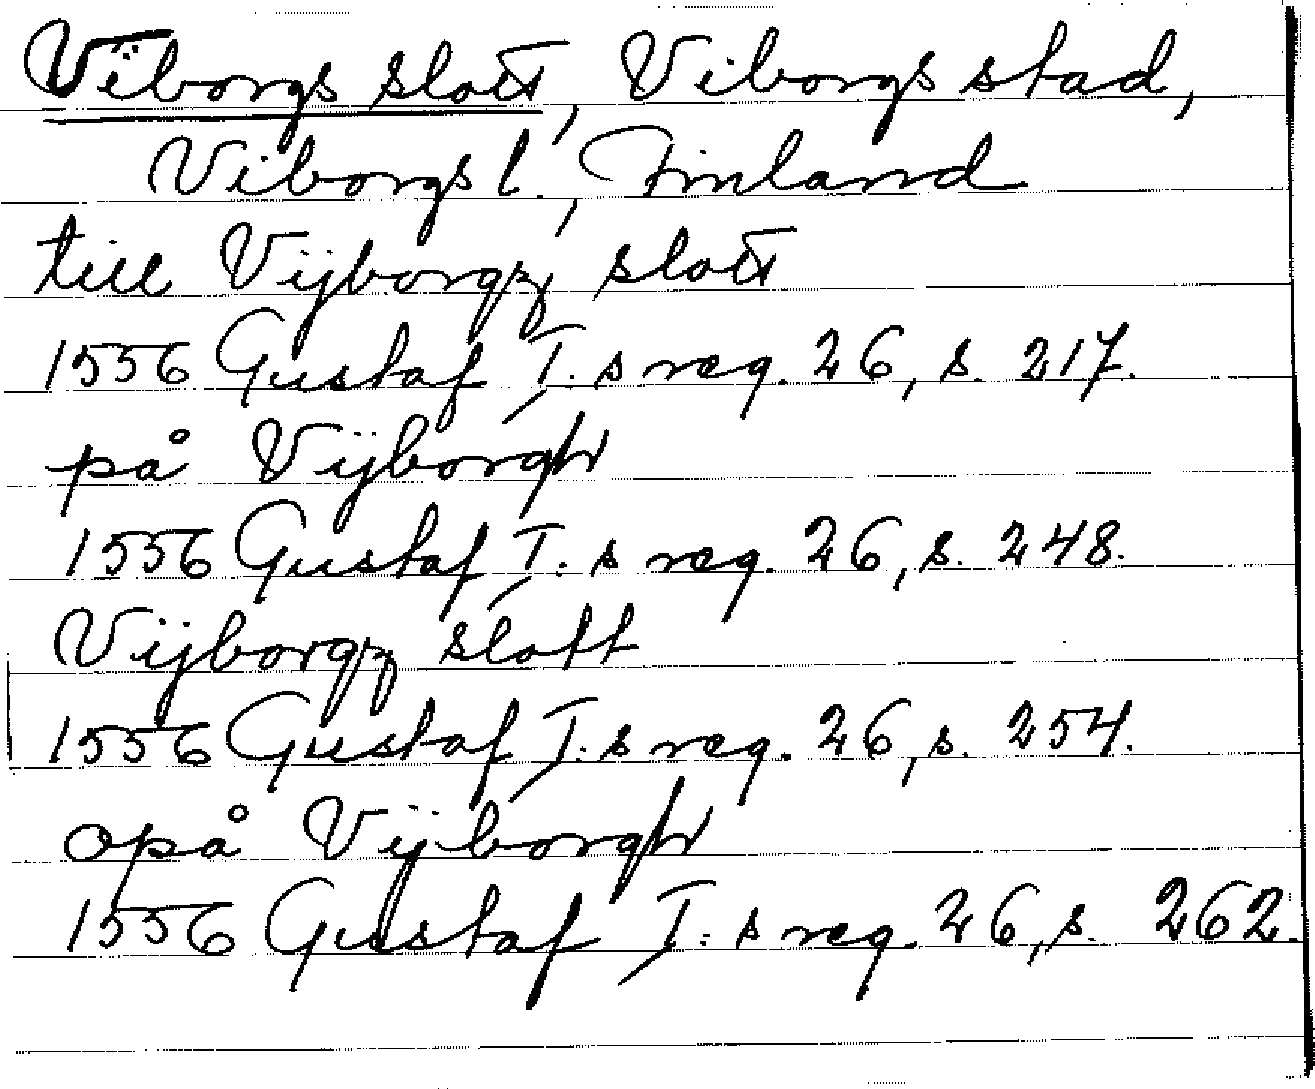 Viborgs slott, Viborgs stad,
Viborgs l., Finland
till Vijborgz slott
1556 Gustaf I:s reg. 26, s. 217.
på Vijborgh
1556 Gustaf I:s reg. 26, s. 248.
Vijborgz slott
1556 Gustaf I:s reg. 26, s. 254.
opå Vijborgh
1556 Gustaf I:s reg. 26, s. 262.